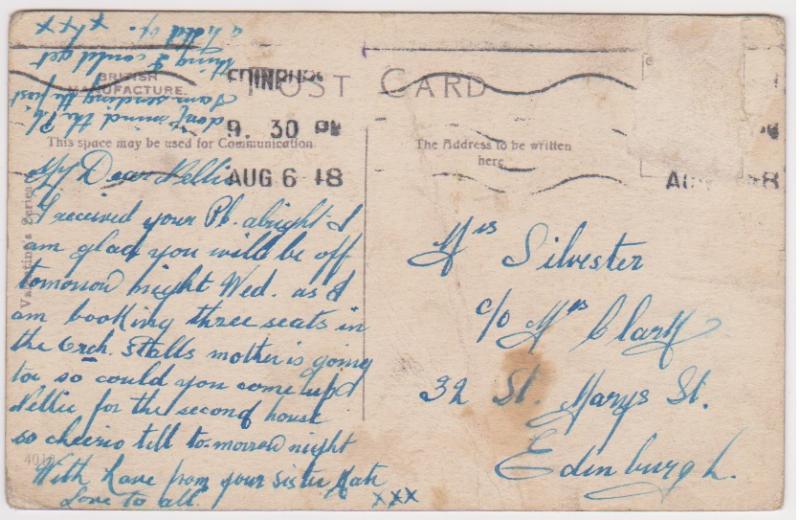 POST CARD
BRITISH
MANUFACTURE.
This space may be used for Communication
The Address to be written
here
EDINBURGH
9. 30 PM
AUG 6 18
AUG 8
Valentine's Series
4010
My Dear Nellie
I received your Pc. alright I
am glad you will be off
tomorrow night Wed. as I
am booking three seats in
the Orch. Stalls mother is going
too so could you come up
Nellie for the second house
so cheerio till to-morrow night
With Love from your sister Kate
Love to all. xxx
don't mind the Pc.
I am sending the first
thing I could get
a hold of.
xxx
Mrs Silvester
c/o Mrs Clark
32 St. Marys St.
Edinburgh.